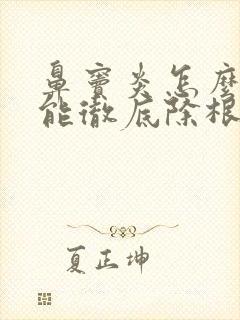 鼻窦炎怎麽
能徹底除根
夏正坤